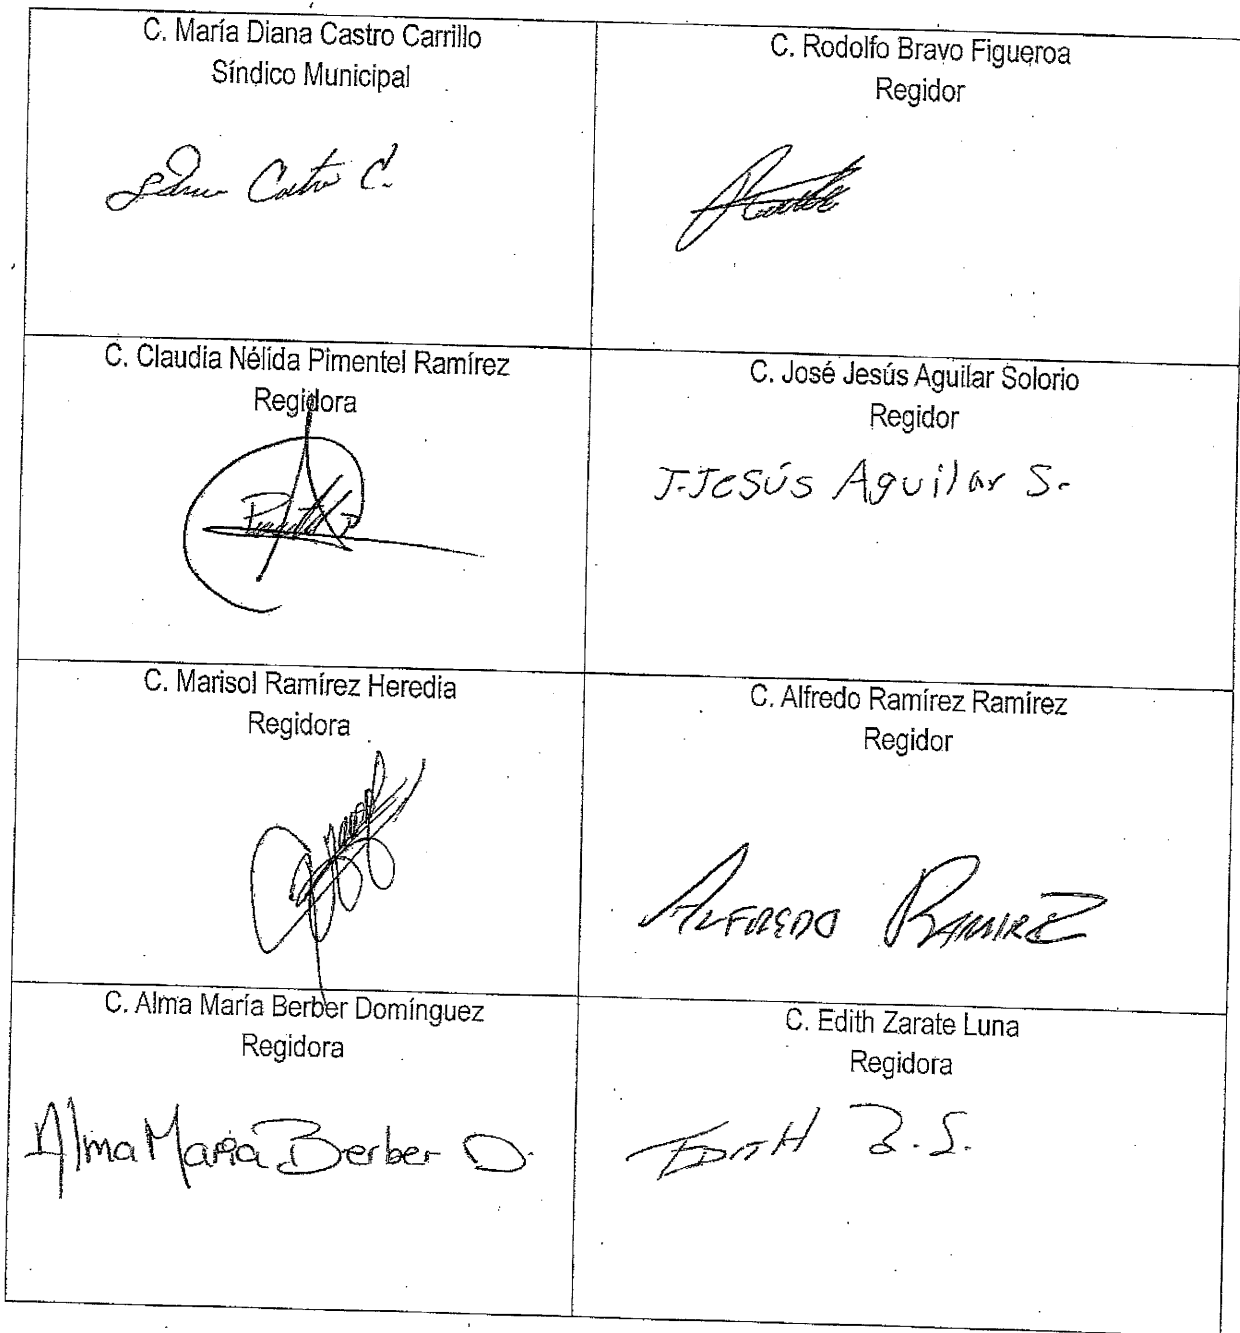 C. María Diana Castro Carrillo
Síndico Municipal
Castro C.
C. Rodolfo Bravo Figueroa
Regidor
C. Claudia Nélida Pimentel Ramírez
Regidora
C. José Jesús Aguilar Solorio
Regidor
J. Jesús Aguilar S.
C. Marisol Ramírez Heredia
Regidora
C. Alfredo Ramírez Ramírez
Regidor
ALFREDO RAMIREZ
C. Alma María Berber Domínguez
Regidora
Alma Maria Berber D.
C. Edith Zarate Luna
Regidora
EDITH Z.